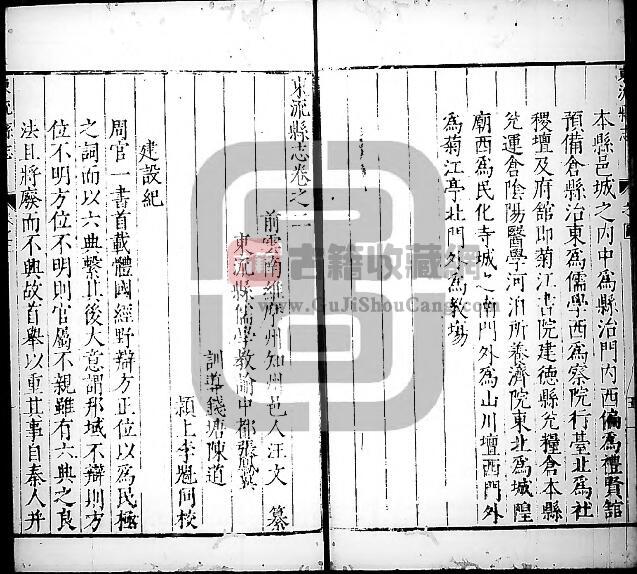 東流縣志
本縣邑城之内中爲縣治門内西偏爲禮賢館
預備倉縣治東爲儒學西爲察院行臺北爲社
稷壇及府舘即菊江書院建德縣兌糧倉本縣
兌運倉陰陽醫學河泊所養濟院東北爲城隍
廟西爲民化寺城之南門外爲山川壇西門外
爲菊江亭北門外爲教塲
東流縣志卷之二
前雲南維摩州知州邑人汪文 纂
東流縣儒學教諭中都張鳳翼
訓導錢塘陳道
潁上李 同校
建設紀
周官一書首載體國經野辯方正位以爲民極
之詞而以六典繫其後大意謂邦域不辯則方
位不明方位不明則官屬不親雖有六典之良
法且將廢而不興故首舉以重其事自秦人并
東流縣志
古籍收藏网
www.GuJiShouCang.com